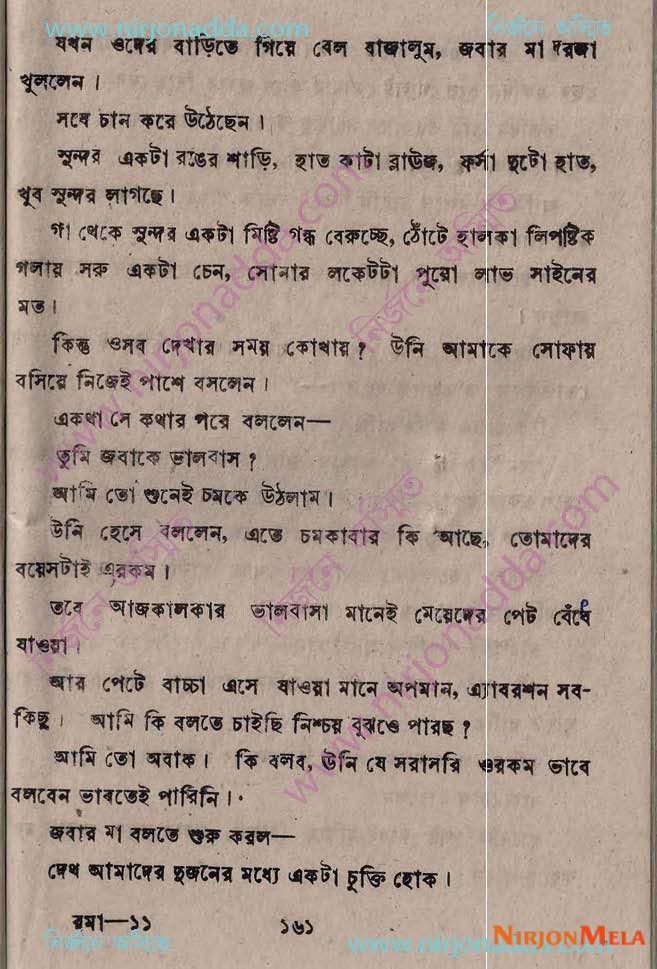 www.nirjonadda.com
নির্জনে অস্মিত
যখন ওদের বাড়িতে গিয়ে বেল বাজালুম, জবার মা দরজা
খুললেন।
সবে চান করে উঠেছেন।
সুন্দর একটা রঙের শাড়ি, হাত কাটা ব্লাউজ, ফর্সা দুটো হাত,
খুব সুন্দর লাগছে।
গা থেকে সুন্দর একটা মিষ্টি গন্ধ বেরুচ্ছে, ঠোঁটে হালকা লিপষ্টিক
গলায় সরু একটা চেন, সোনার লকেটটা পুরো লাভ সাইনের
মত।
কিন্তু ওসব দেখার সময় কোথায়? উনি আমাকে সোফায়
বসিয়ে নিজেই পাশে বসলেন।
একথা সে কথার পরে বললেন—
তুমি জবাকে ভালবাস?
আমি তো শুনেই চমকে উঠলাম।
উনি হেসে বললেন, এতে চমকাবার কি আছে, তোমাদের
বয়েসটাই এরকম।
তবে আজকালকার ভালবাসা মানেই মেয়েদের পেট বেঁধে
যাওয়া।
আর পেটে বাচ্চা এসে যাওয়া মানে অপমান, এ্যাবরশন সব-
কিছু। আমি কি বলতে চাইছি নিশ্চয় বুঝতে পারছ?
আমি তো অবাক। কি বলব, উনি যে সরাসরি ওরকম ভাবে
বলবেন ভাবতেই পারিনি।
জবার মা বলতে শুরু করল—
দেখ আমাদের দুজনের মধ্যে একটা চুক্তি হোক।
রমা—১১
১৬১
www.nirjonadda.com
NIRJONMELA